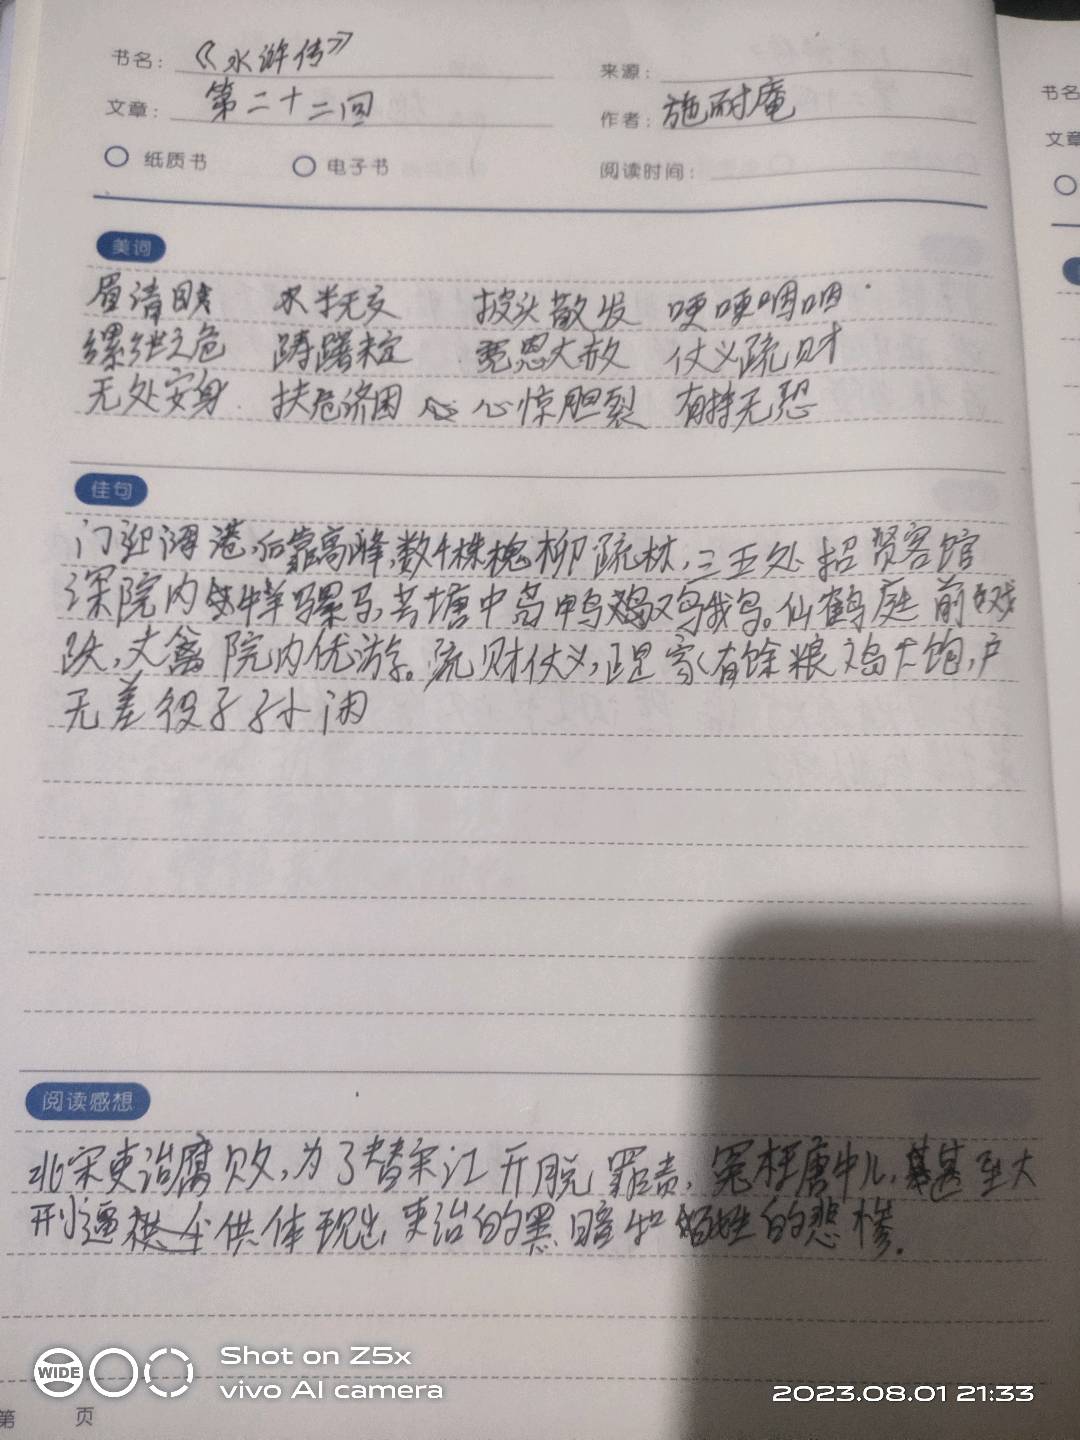 书名：《水浒传》 来源：
文章：第二十二回 作者：施耐庵
纸质书 电子书 阅读时间：
书名
文章
美词
眉清目 水米无交 披头散发 哽哽咽咽
缧绁之危 踌躇未定 宽恩大赦 仗义疏财
无处安身 扶危济困 心惊胆裂 有恃无恐
佳句
门迎阔港,后靠高峰,数千株槐柳疏林,三五处招贤客馆
深院内牛羊骡马,芳塘中凫鸭鸡鹅。仙鹤庭前戏
跃,文禽院内优游。疏财仗义,正是家有馀粮鸡犬饱,户
无差役子孙闲
阅读感想
北宋吏治腐败,为了替宋江开脱罪责,冤枉唐牛儿,甚至大
刑逼供体现出吏治的黑暗和百姓的悲惨.
WIDE
Shot on Z5x
vivo AI camera
2023.08.01 21:33
第 页